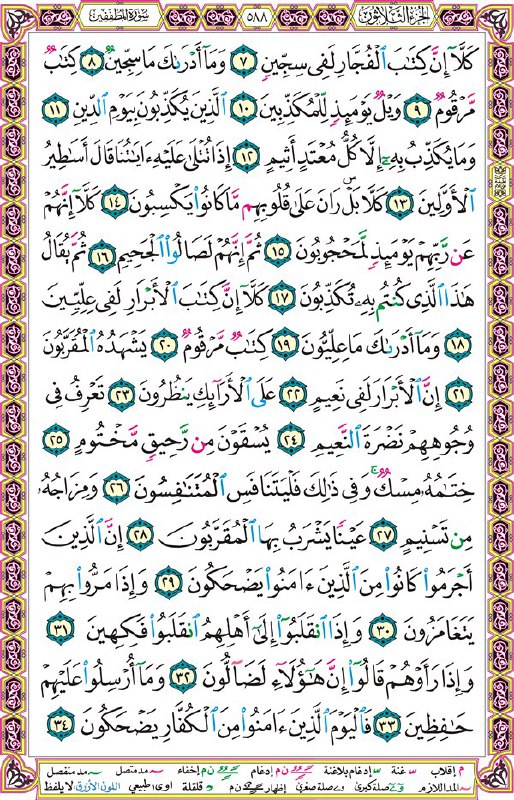 الجزء الثلاثون ٥٨٨ سورة المطففين
كَلَّآ إِنَّ كِتَٰبَ ٱلْفُجَّارِ لَفِى سِجِّينٍ ٧ وَمَآ أَدْرَىٰكَ مَا سِجِّينٌ ٨ كِتَٰبٌ
مَّرْقُومٌ ٩ وَيْلٌ يَوْمَئِذٍ لِّلْمُكَذِّبِينَ ١٠ ٱلَّذِينَ يُكَذِّبُونَ بِيَوْمِ ٱلدِّينِ ١١
وَمَا يُكَذِّبُ بِهِۦٓ إِلَّا كُلُّ مُعْتَدٍ أَثِيمٍ ١٢ إِذَا تُتْلَىٰ عَلَيْهِ ءَايَٰتُنَا قَالَ أَسَٰطِيرُ
ٱلْأَوَّلِينَ ١٣ كَلَّا بَلْ ۜ رَانَ عَلَىٰ قُلُوبِهِم مَّا كَانُوا۟ يَكْسِبُونَ ١٤ كَلَّآ إِنَّهُمْ
عَن رَّبِّهِمْ يَوْمَئِذٍ لَّمَحْجُوبُونَ ١٥ ثُمَّ إِنَّهُمْ لَصَالُوا۟ ٱلْجَحِيمِ ١٦ ثُمَّ يُقَالُ
هَٰذَا ٱلَّذِى كُنتُم بِهِۦ تُكَذِّبُونَ ١٧ كَلَّآ إِنَّ كِتَٰبَ ٱلْأَبْرَارِ لَفِى عِلِّيِّينَ
١٨ وَمَآ أَدْرَىٰكَ مَا عِلِّيُّونَ ١٩ كِتَٰبٌ مَّرْقُومٌ ٢٠ يَشْهَدُهُ ٱلْمُقَرَّبُونَ
٢١ إِنَّ ٱلْأَبْرَارَ لَفِى نَعِيمٍ ٢٢ عَلَى ٱلْأَرَآئِكِ يَنظُرُونَ ٢٣ تَعْرِفُ فِى
وُجُوهِهِمْ نَضْرَةَ ٱلنَّعِيمِ ٢٤ يُسْقَوْنَ مِن رَّحِيقٍ مَّخْتُومٍ ٢٥
خِتَٰمُهُۥ مِسْكٌ ۚ وَفِى ذَٰلِكَ فَلْيَتَنَافَسِ ٱلْمُتَنَٰفِسُونَ ٢٦ وَمِزَاجُهُۥ
مِن تَسْنِيمٍ ٢٧ عَيْنًا يَشْرَبُ بِهَا ٱلْمُقَرَّبُونَ ٢٨ إِنَّ ٱلَّذِينَ
أَجْرَمُوا۟ كَانُوا۟ مِنَ ٱلَّذِينَ ءَامَنُوا۟ يَضْحَكُونَ ٢٩ وَإِذَا مَرُّوا۟ بِهِمْ
يَتَغَامَزُونَ ٣٠ وَإِذَا ٱنقَلَبُوٓا۟ إِلَىٰٓ أَهْلِهِمُ ٱنقَلَبُوا۟ فَكِهِينَ ٣١
وَإِذَا رَأَوْهُمْ قَالُوٓا۟ إِنَّ هَٰٓؤُلَآءِ لَضَآلُّونَ ٣٢ وَمَآ أُرْسِلُوا۟ عَلَيْهِمْ
حَٰفِظِينَ ٣٣ فَٱلْيَوْمَ ٱلَّذِينَ ءَامَنُوا۟ مِنَ ٱلْكُفَّارِ يَضْحَكُونَ ٣٤
م إقلاب غنة إدغام بلاغنة ن م إدغام ن م إخفاء مد متصل مد منفصل
المد اللازم صلة كبرى صلة صغرى إظهار ن م قلقلة اوى طبيعي اللون الأزرق لا يلفظ